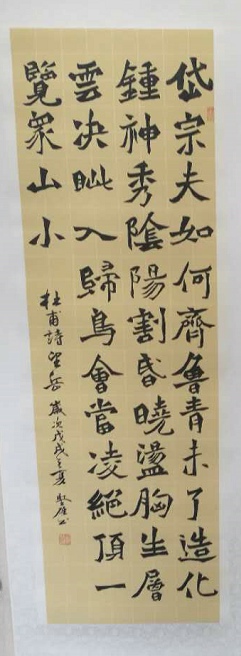 岱宗夫如何齊魯青未了造化
鍾神秀陰陽割昏曉盪胸生層
雲决眦入歸鳥會當凌絕頂一
覽衆山小
杜甫詩望岳 歲次戊戌之夏